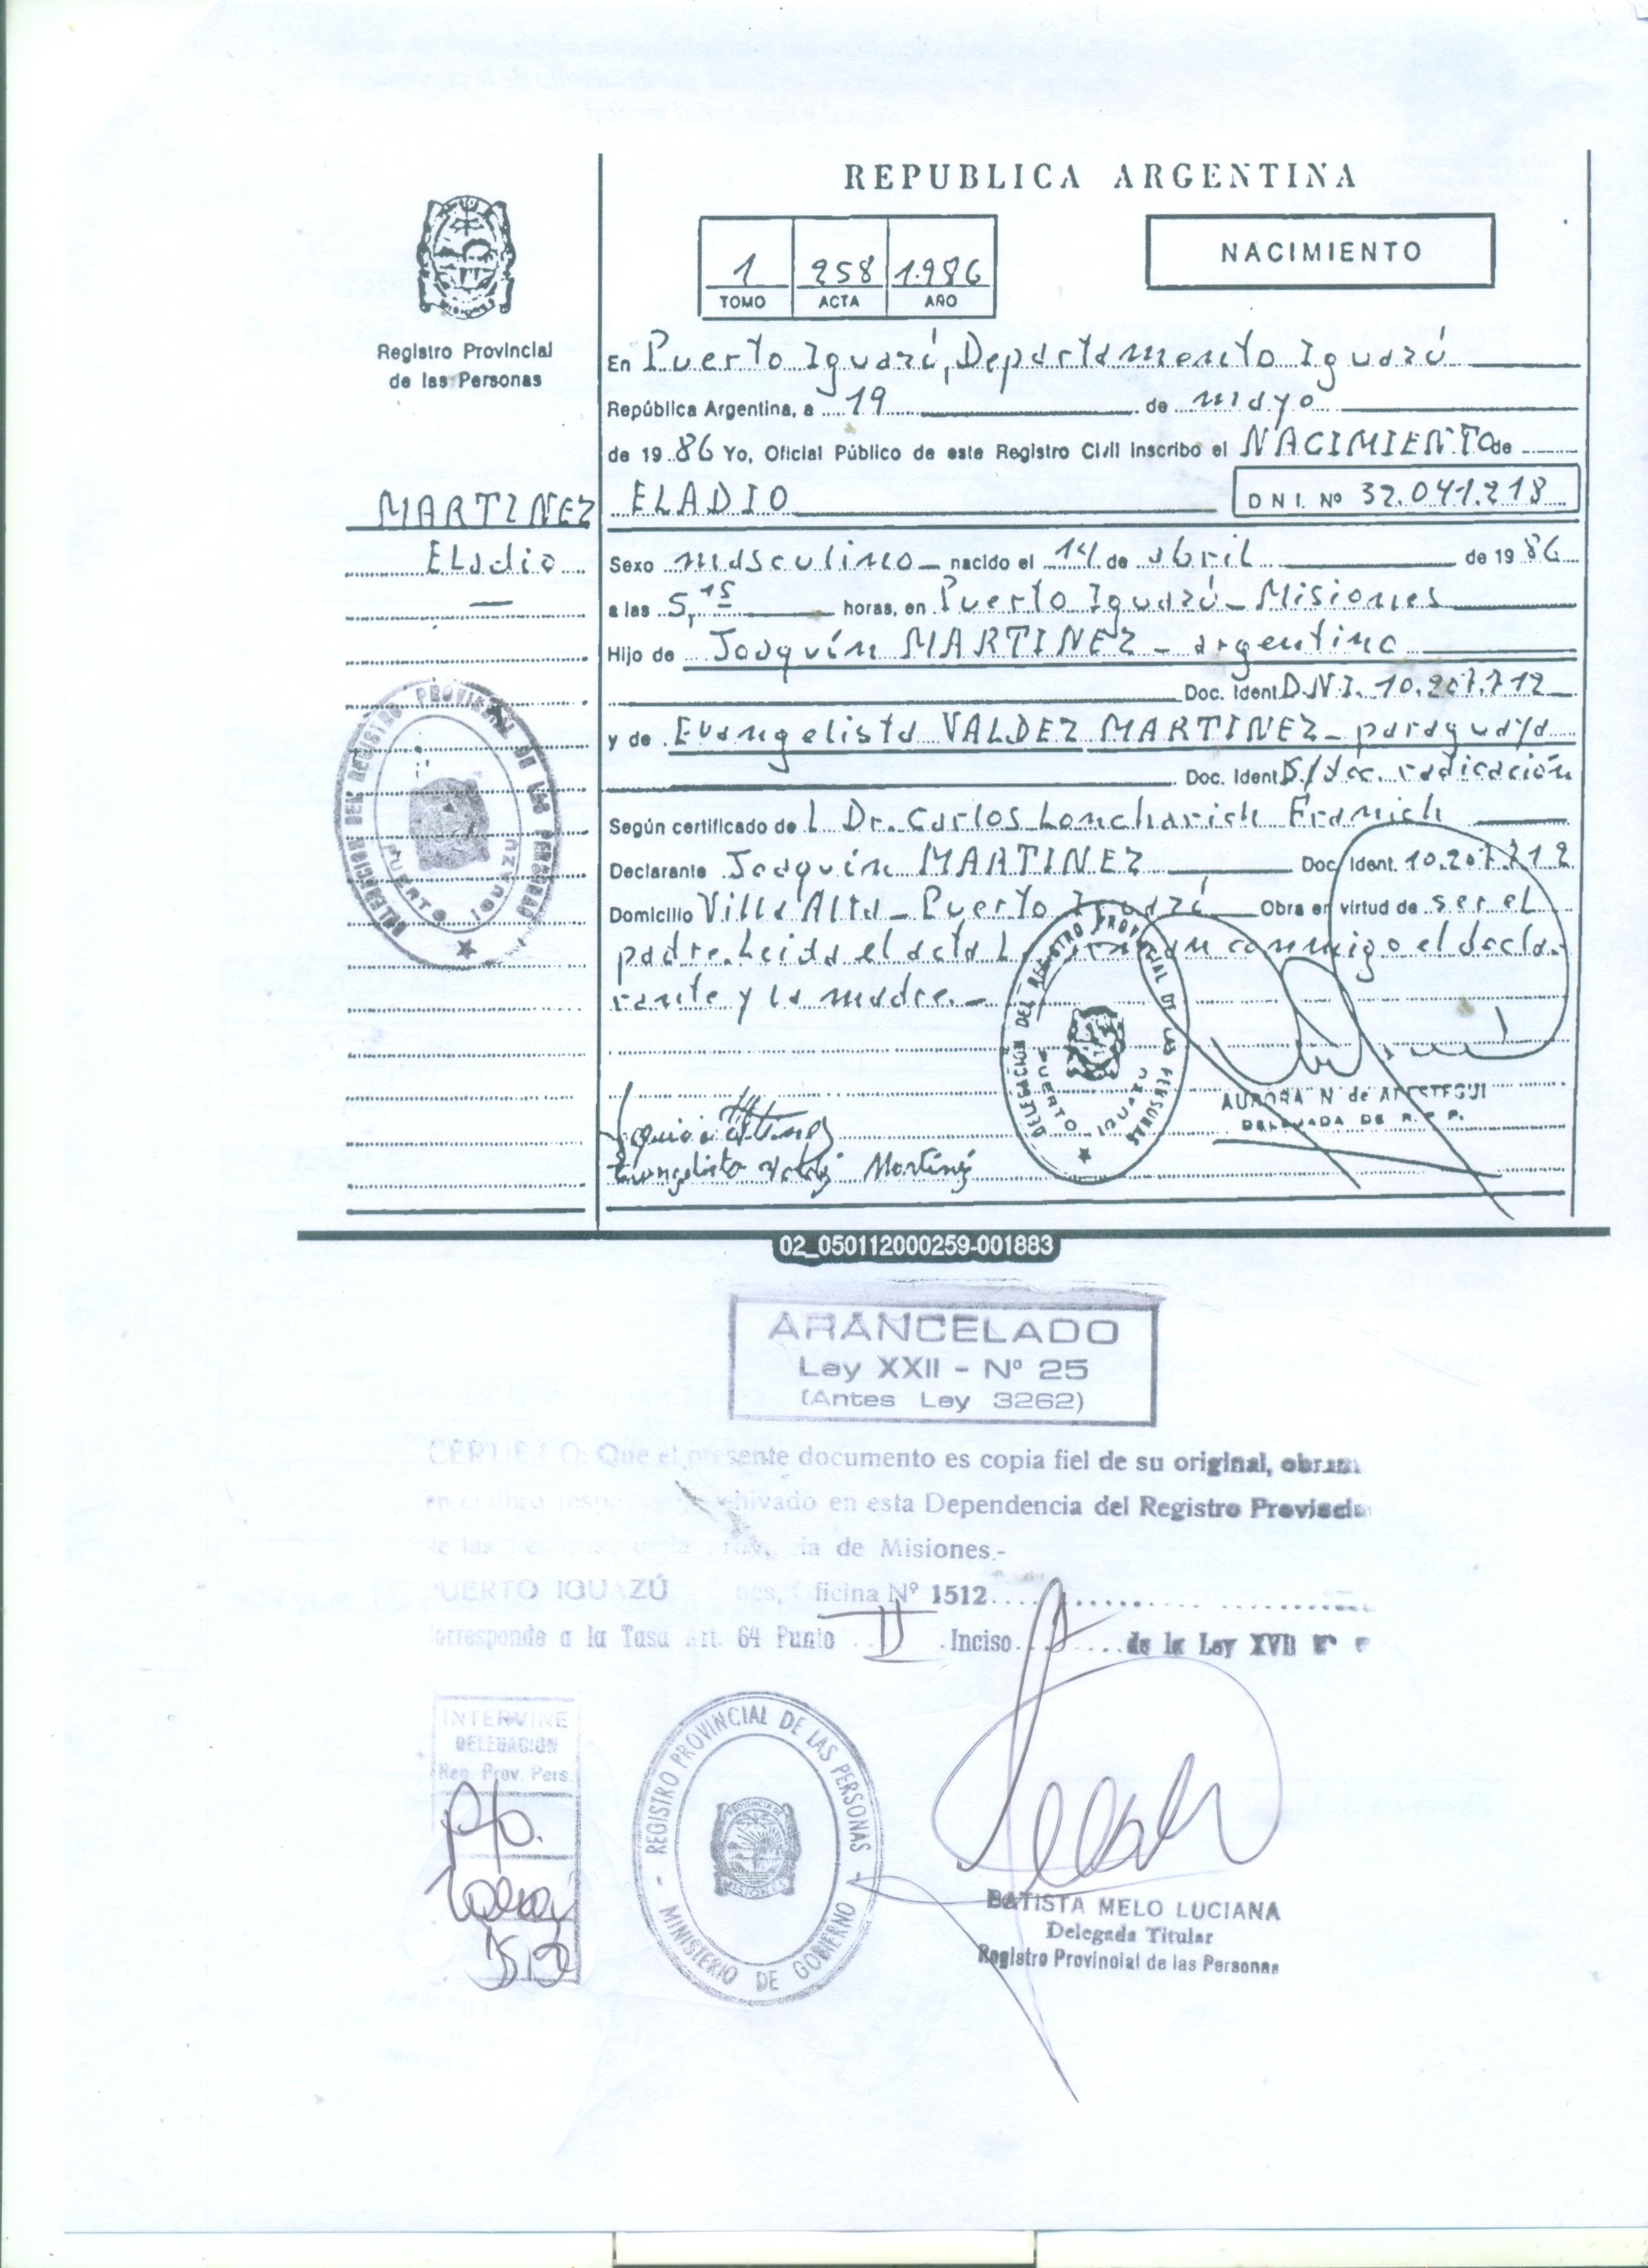 REPUBLICA ARGENTINA
NACIMIENTO
1 258 1.986
TOMO ACTA AÑO
MISIONES
Registro Provincial
de las Personas
En Puerto Iguazú, Departamento Iguazú
República Argentina, a 19 de mayo
de 1986 Yo, Oficial Público de este Registro Civil inscribo el NACIMIENTO de
MARTINEZ
Eladio
ELADIO
DNI. Nº 32.041.218
Sexo masculino nacido el 14 de abril de 1986
a las 5,15 horas, en Puerto Iguazú - Misiones
Hijo de Joaquín MARTINEZ - argentino
Doc. Ident D.N.I. 10.207.712
y de Evangelista VALDEZ MARTINEZ - paraguaya
Doc. Ident S/ radicación
Según certificado del Dr. Carlos Loncharich Franich
Declarante Joaquín MARTINEZ Doc. Ident. 10.207.712
Domicilio Villa Alta - Puerto Iguazú Obra en virtud de ser el
padre. Leida el acta conmigo el decla-
rante y la madre.-
DELEGACION DEL REGISTRO PROVINCIAL DE LAS PERSONAS
PUERTO IGUAZU
DELEGACION DEL REGISTRO PROVINCIAL DE LAS PERSONAS
PUERTO IGUAZU
AURORA N de
DELEGADA DE R.P.P.
Evangelista Valdez Martinez
02_050112000259-001883
ARANCELADO
Ley XXII - Nº 25
(Antes Ley 3262)
CERTIFICO: Que el presente documento es copia fiel de su original,
en esta Dependencia del Registro
de las de Misiones.-
PUERTO IGUAZÚ Nº 1512
a la Tasa Art. 64 Punto II Inciso de la Ley
INTERVINE
DELEGACION
Reg. Prov. Pers.
REGISTRO PROVINCIAL DE LAS PERSONAS
PROVINCIA DE
MISIONES
MINISTERIO DE GOBIERNO
BATISTA MELO LUCIANA
Delegada Titular
Registro Provincial de las Personas